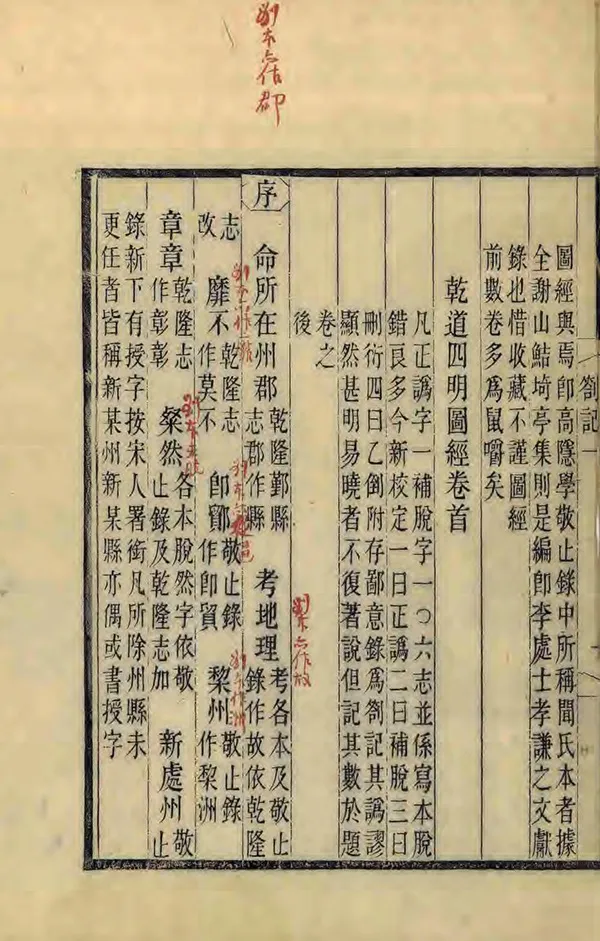 劄記 一
圖經與焉卽高隱學敬止錄中所稱聞氏本者據
全謝山鮚埼亭集則是編卽李處士孝謙之文獻
錄也惜收藏不謹圖經
前數卷多爲鼠嚼矣
乾道四明圖經卷首
凡正譌字一補脫字一〇六志並係寫本脫
錯良多今新校定一曰正譌二曰補脫三曰
刪衍四曰乙倒附存鄙意錄爲劄記其譌謬
顯然甚明易曉者不復著說但記其數於題
卷之
後
序 命所在州郡 乾隆鄞縣志郡作縣 考地理 考各本及敬止錄作故依乾隆
志改 靡不 乾隆志作莫不 卽鄮 敬止錄作卽貿 棃州 敬止錄作棃洲
章章 乾隆志作彰彰 粲然 各本脫然字依敬止錄及乾隆志加 新處州 敬止
錄新下有授字按宋人署銜凡所除州縣未
更任者皆稱新某州新某縣亦偶或書授字
別本亦作郡
別本亦作故